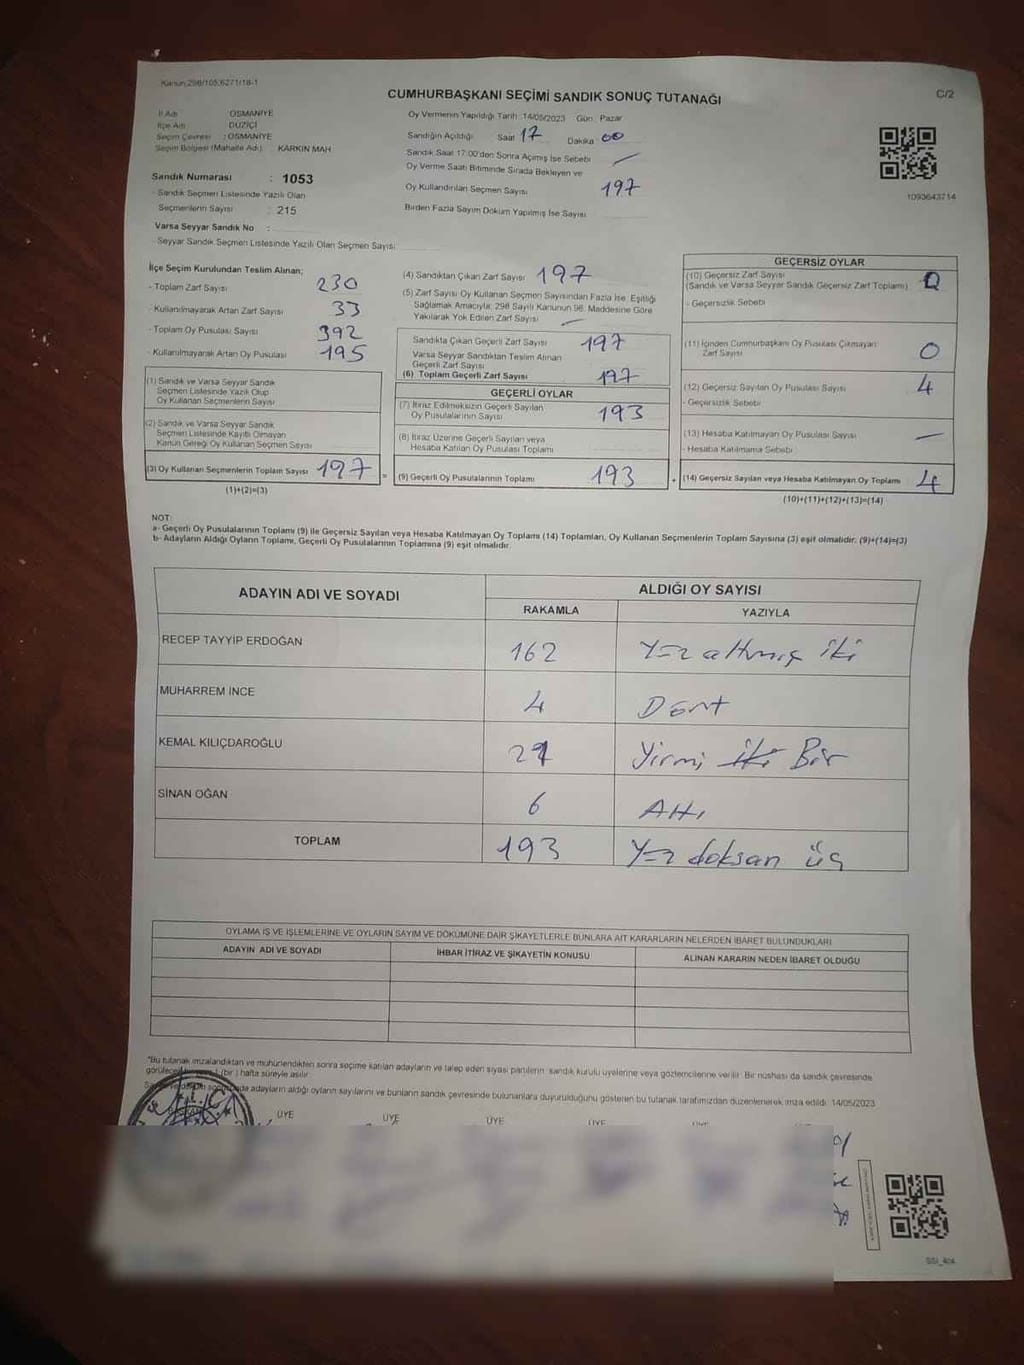 Kanun:298/105;6271/18-1
CUMHURBAŞKANI SEÇİMİ SANDIK SONUÇ TUTANAĞI
C/2
İl Adı OSMANİYE
İlçe Adı DÜZİÇİ
Seçim Çevresi : OSMANİYE
Seçim Bölgesi (Mahalle Adı) KARKIN MAH.
Sandık Numarası : 1053
- Sandık Seçmen Listesinde Yazılı Olan
Seçmenlerin Sayısı : 215
Varsa Seyyar Sandık No :
- Seyyar Sandık Seçmen Listesinde Yazılı Olan Seçmen Sayısı:
Oy Vermenin Yapıldığı Tarih :14/05/2023 Gün: Pazar
Sandığın Açıldığı Saat 17 Dakika 00
Sandık Saat 17:00'den Sonra Açılmış İse Sebebi
Oy Verme Saati Bitiminde Sırada Bekleyen ve
Oy Kullandırılan Seçmen Sayısı 197
Birden Fazla Sayım Döküm Yapılmış İse Sayısı
1093643714
İlçe Seçim Kurulundan Teslim Alınan;
- Toplam Zarf Sayısı 230
- Kullanılmayarak Artan Zarf Sayısı 33
- Toplam Oy Pusulası Sayısı 392
- Kullanılmayarak Artan Oy Pusulası 195
(1) Sandık ve Varsa Seyyar Sandık
Seçmen Listesinde Yazılı Olup
Oy Kullanan Seçmenlerin Sayısı
(2) Sandık ve Varsa Seyyar Sandık
Seçmen Listesinde Kayıtlı Olmayan
Kanun Gereği Oy Kullanan Seçmen Sayısı
(3) Oy Kullanan Seçmenlerin Toplam Sayısı 197 =
(1)+(2)=(3)
(4) Sandıktan Çıkan Zarf Sayısı 197
(5) Zarf Sayısı Oy Kullanan Seçmen Sayısından Fazla İse, Eşitliği
Sağlamak Amacıyla; 298 Sayılı Kanunun 98. Maddesine Göre
Yakılarak Yok Edilen Zarf Sayısı
Sandıkta Çıkan Geçerli Zarf Sayısı 197
Varsa Seyyar Sandıktan Teslim Alınan
Geçerli Zarf Sayısı
(6) Toplam Geçerli Zarf Sayısı 197
GEÇERLİ OYLAR
(7) İtiraz Edilmeksizin Geçerli Sayılan
Oy Pusulalarının Sayısı 193
(8) İtiraz Üzerine Geçerli Sayılan veya
Hesaba Katılan Oy Pusulası Toplamı
(9) Geçerli Oy Pusulalarının Toplamı 193 +
GEÇERSİZ OYLAR
(10) Geçersiz Zarf Sayısı
(Sandık ve Varsa Seyyar Sandık Geçersiz Zarf Toplamı) 0
- Geçersizlik Sebebi
(11) İçinden Cumhurbaşkanı Oy Pusulası Çıkmayan
Zarf Sayısı 0
(12) Geçersiz Sayılan Oy Pusulası Sayısı 4
- Geçersizlik Sebebi
(13) Hesaba Katılmayan Oy Pusulası Sayısı —
- Hesaba Katılmama Sebebi
(14) Geçersiz Sayılan veya Hesaba Katılmayan Oy Toplamı 4
(10)+(11)+(12)+(13)=(14)
NOT:
a- Geçerli Oy Pusulalarının Toplamı (9) ile Geçersiz Sayılan veya Hesaba Katılmayan Oy Toplamı (14) Toplamları, Oy Kullanan Seçmenlerin Toplam Sayısına (3) eşit olmalıdır. (9)+(14)=(3)
b- Adayların Aldığı Oyların Toplamı, Geçerli Oy Pusulalarının Toplamına (9) eşit olmalıdır.
ADAYIN ADI VE SOYADI
ALDIĞI OY SAYISI
RAKAMLA YAZIYLA
RECEP TAYYİP ERDOĞAN 162 Yüz altmış iki
MUHARREM İNCE 4 Dört
KEMAL KILIÇDAROĞLU 21 Yirmi iki Bir
SİNAN OĞAN 6 Altı
TOPLAM 193 Yüz doksan üç
OYLAMA İŞ VE İŞLEMLERİNE VE OYLARIN SAYIM VE DÖKÜMÜNE DAİR ŞİKAYETLERLE BUNLARA AİT KARARLARIN NELERDEN İBARET BULUNDUKLARI
ADAYIN ADI VE SOYADI İHBAR İTİRAZ VE ŞİKAYETİN KONUSU ALINAN KARARIN NEDEN İBARET OLDUĞU
*Bu tutanak imzalandıktan ve mühürlendikten sonra seçime katılan adayların ve talep eden siyasi partilerin sandık kurulu üyelerine veya gözlemcilerine verilir. Bir nüshası da sandık çevresinde
görülecek (bir) hafta süreyle asılır.
adayların aldığı oyların sayılarını ve bunların sandık çevresinde bulunanlara duyurulduğunu gösteren bu tutanak tarafımızdan düzenlenerek imza edildi. 14/05/2023
ÜYE ÜYE ÜYE ÜYE ÜYE
T.C.